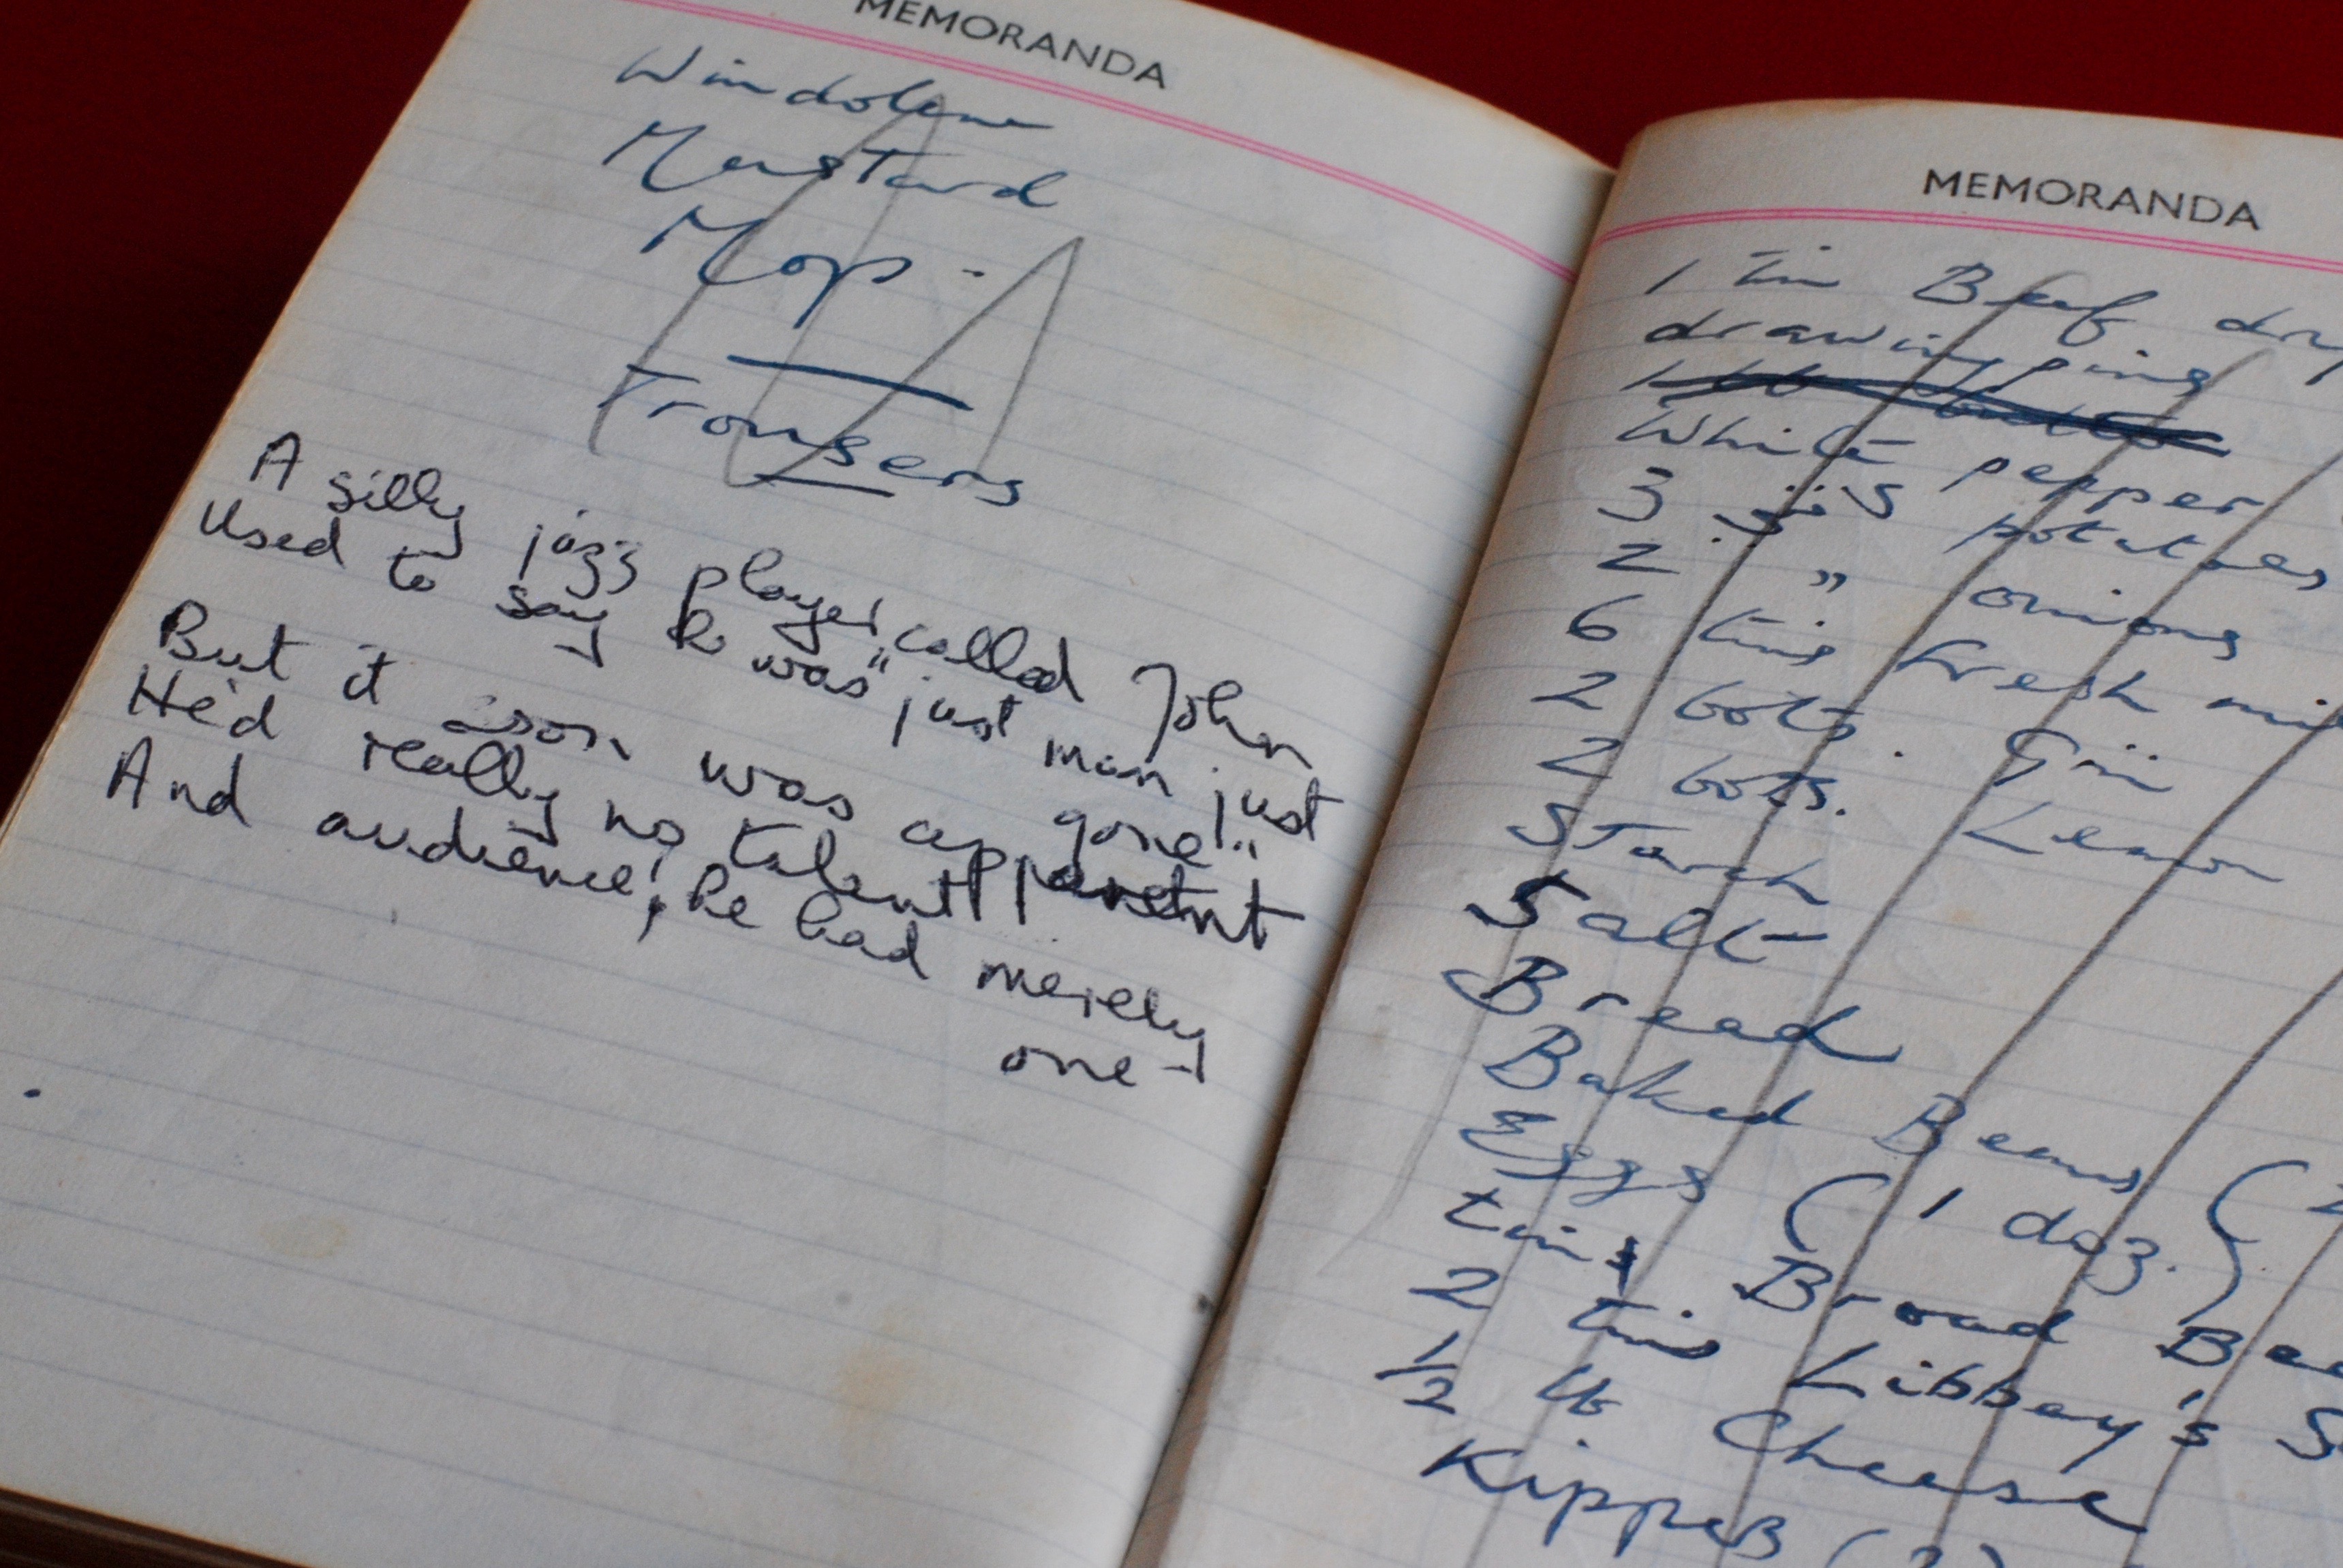 MEMORANDA
Windolene
Mustard
Mop.
Trousers
A silly jazz player called John
Used to say he was "just man just
gone!"
But it soon was apparent
He'd really no talent
And audience, he had merely
one -
MEMORANDA
1 tin Beef
drawing pins
White pepper
3 potatoes
2 " onions
6 tins fresh
2 bots. Gin
2 bots. Lemon
Starch
Salt
Bread
Baked Beans (2
Eggs (1 doz.)
tins Broad
2 tins Libbey's
1/2 lb Cheese
Kippers (2)